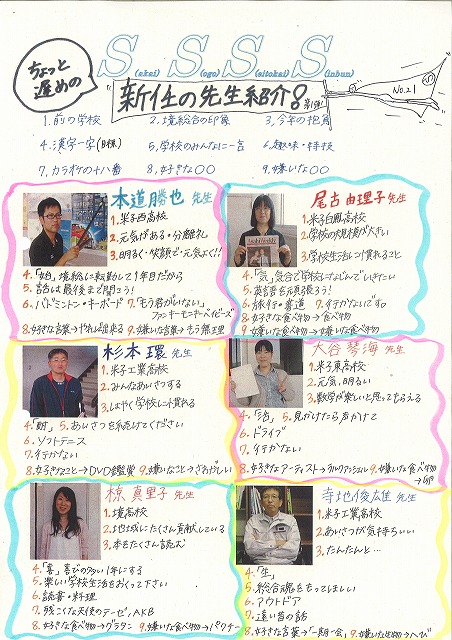 ちょっと
遅めの
S(akai) S(ogo) S(eitokai) S(inbun)
No.21
"新任の先生紹介!
1.前の学校 2.境総合の印象 3.今年の抱負
4.漢字一字(目標) 5.学校のみんなに一言 6.趣味・特技
7.カラオケの十八番 8.好きな〇〇 9.嫌いな〇〇
本道勝也 先生
1.米子西高校
2.元気がある・分離礼
3.明るく・笑顔で・元気よく!!
4.「始」境総合に転勤して1年目だから
5.話は最後まで聞こう!
6.バドミントン・キーボード 7.「もう君がいない」
ファンキーモンキーベイビーズ
8.好きな言葉→やれば出来る 9.嫌いな言葉→もう無理
尾古由理子 先生
1.米子白鳳高校
2.学校の規模が大きい
3.学校生活に慣れること
4.「気」気合で学校になじんでいきたい
5.英語を頑張ろう!
6.旅行・書道 7.行かないです
8.好きな食べ物→食べ物
9.嫌いな食べ物→食べ物
杉本 環 先生
1.米子工業高校
2.みんなあいさつする
3.はやく学校に慣れる
4. 5.あいさつを続けてください
6.ソフトテニス
7.行かない
8.好きなこと→DVD鑑賞 9.嫌いなこと→ざわがしい
大谷琴海 先生
1.米子東高校
2.元気、明るい
3.数学が楽しいと思ってもらえる
4.「活」 5.見かけたら声かけて
6.ドライブ
7.行かない
8.好きなアーティスト→ 9.嫌いな食べ物
椋 真里子 先生
1.境高校
2.地域にたくさん貢献している
3.本をたくさん読む
4.「喜」喜びの多い1年にする
5.楽しい学校生活をおくって下さい
6.読書・料理
7.残こくな天使のテーゼ、AKB
8.好きな食べ物→グラタン 9.嫌いな食べ物→パクチー
寺地俊雄 先生
1.米子工業高校
2.あいさつが気持ちいい
3.たんたんと…
4.「生」
5.総合魂をもってほしい
6.アウトドア
7.遠い昔の話
8.好きな言葉→「一期一会」 9.嫌いな生物→ヘビ